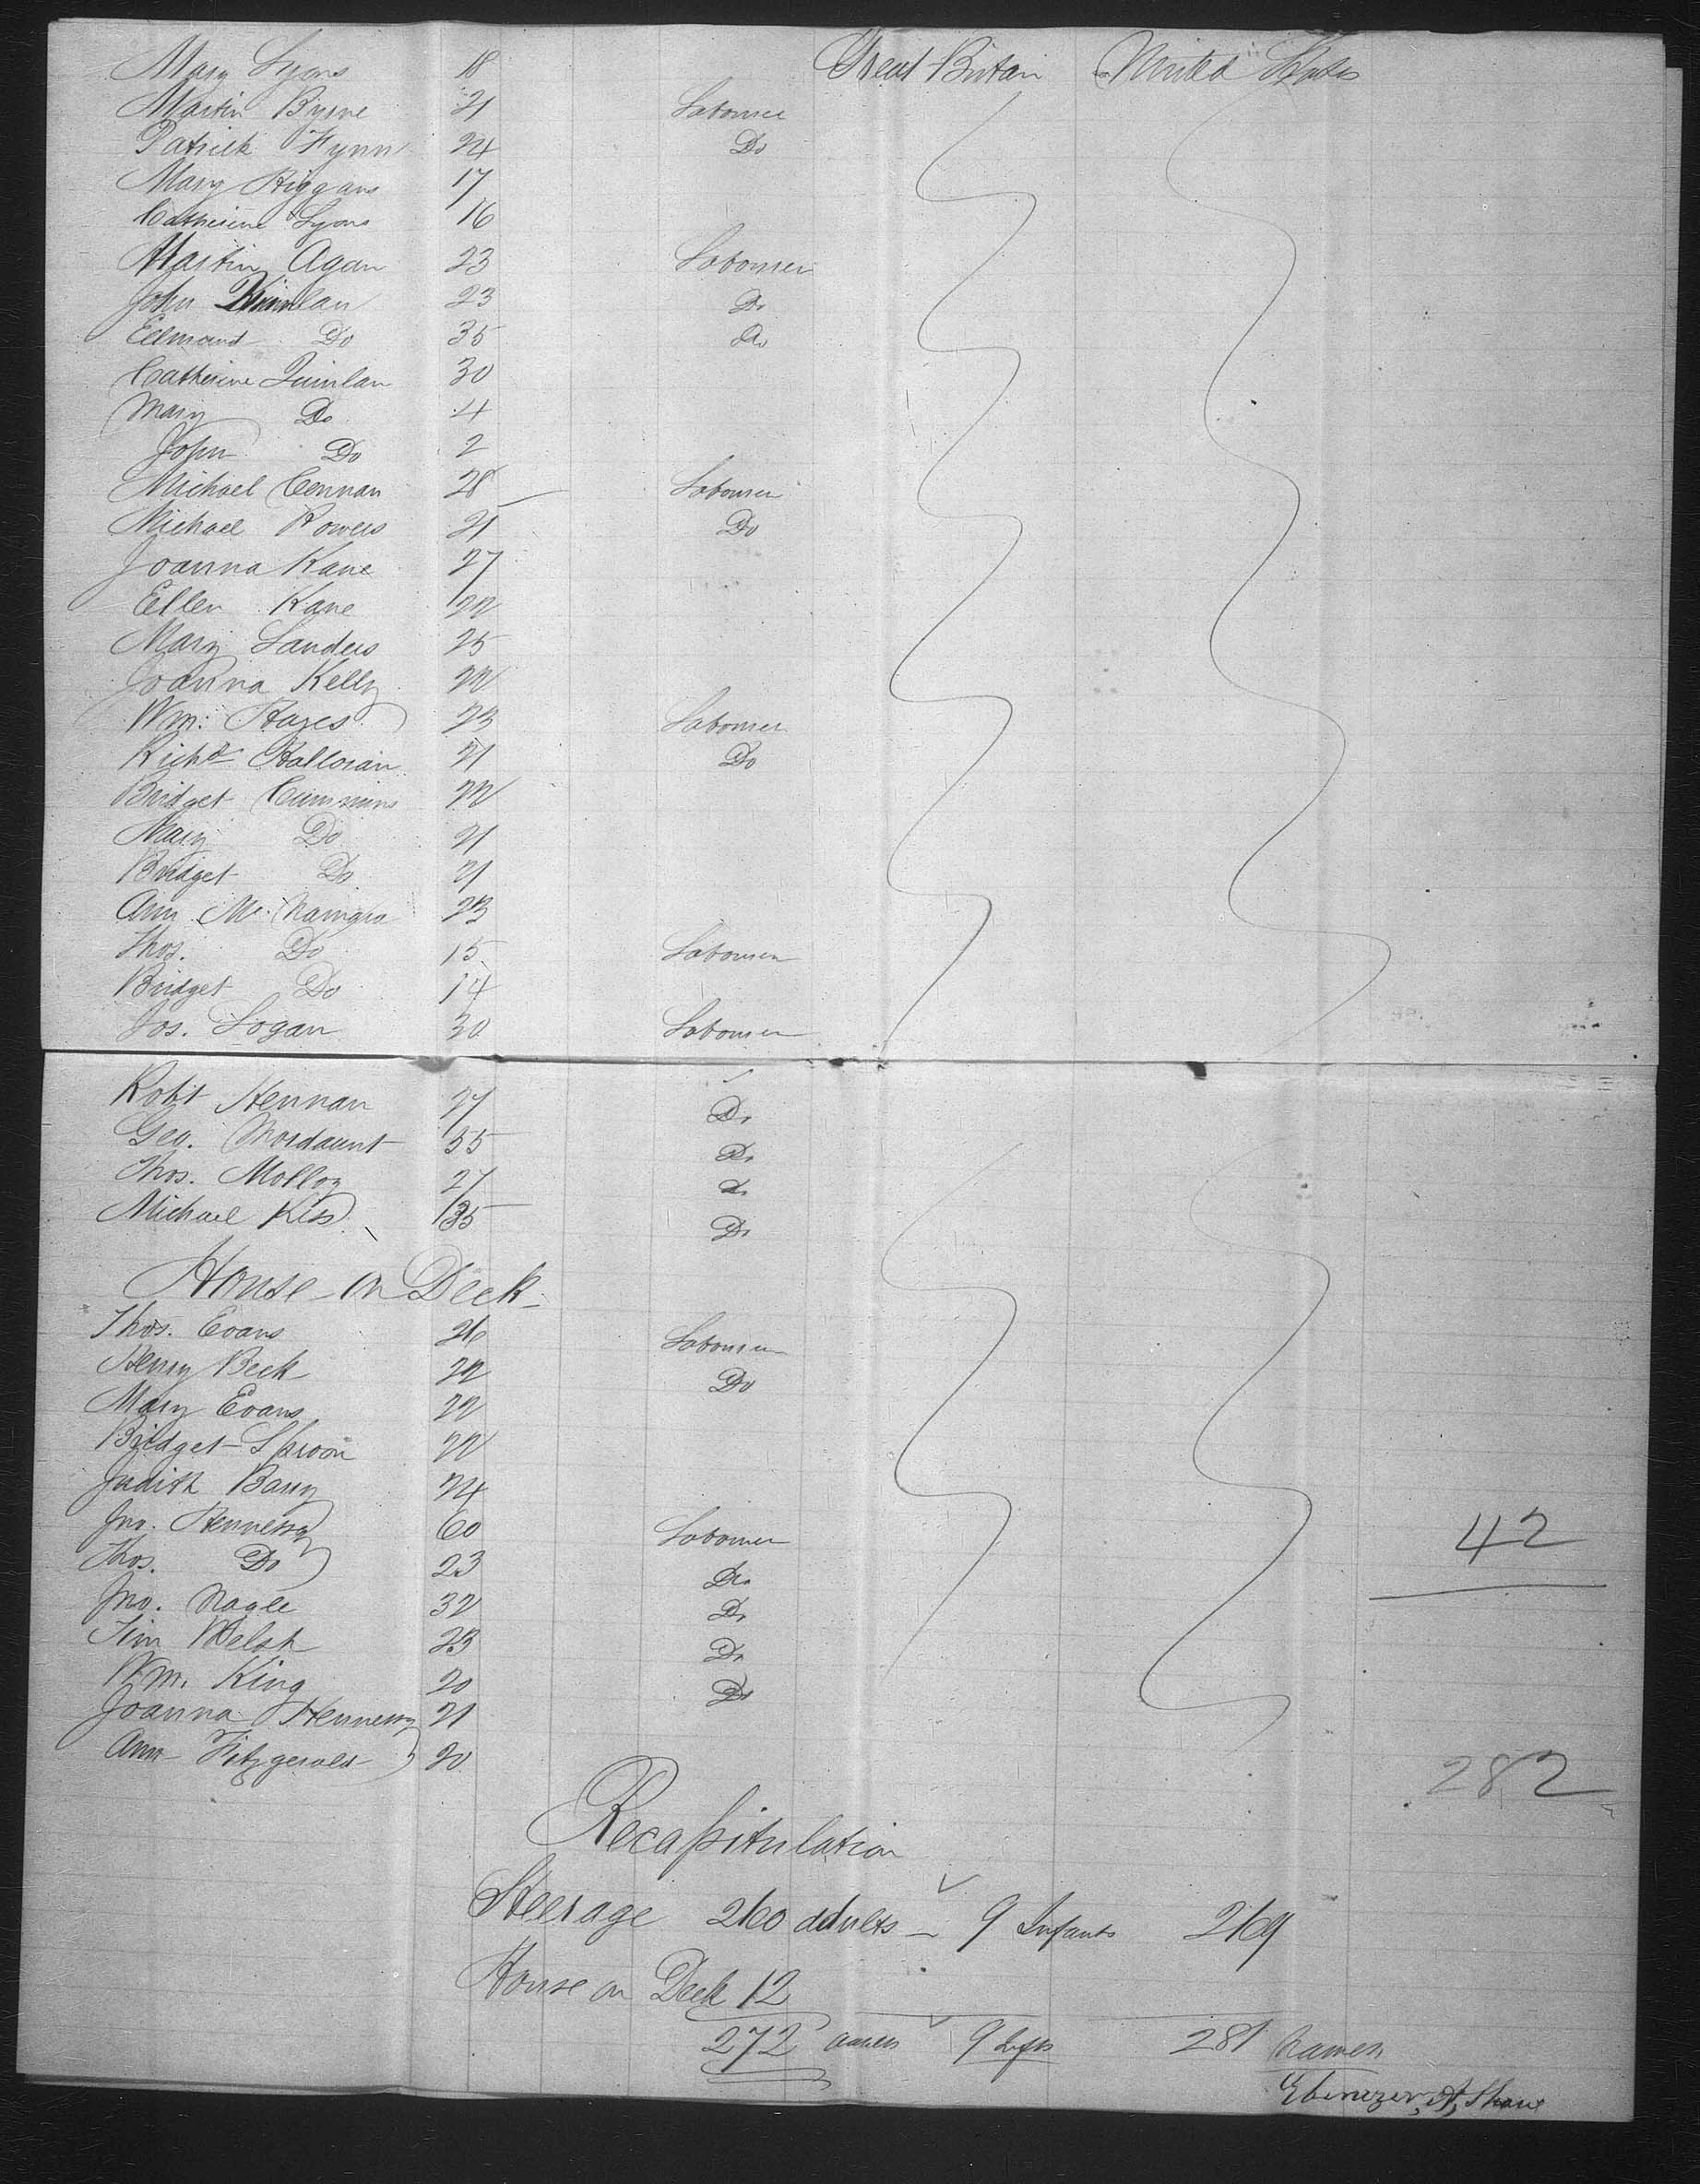 Mary Lyons 18 Great Britain United States
Martin Byrne 21 Labourer
Patrick Flynn 24 Do
Mary Higgans 17
Catherine Lyons 16
Martin Agan 23 Labourer
John Quinlan 23 Do
Edmund Do 35 Do
Catherine Quinlan 30
Mary Do 4
John Do 2
Michael Cennan 28 Labourer
Michael Powers 21 Do
Joanna Kane 27
Ellen Kane 22
Mary Landers 25
Joanna Kelly 22
Wm: Hayes 23 Labourer
Richd Halloran 21 Do
Bridget Cummins 22
Mary Do 21
Bridget Do 21
Ann Mc.Namara 23
Thos. Do 15 Labourer
Bridget Do 14
Jos. Logan 30 Labourer
Robt Hennan 27 Do
Geo. Mordaunt 35 Do
Thos. Molloy 27 Do
Michael Kiss 35 Do
House on Deck
Thos. Evans 26 Labourer
Henry Beck 22 Do
Mary Evans 22
Bridget 22
Judith Barry 24
Jno. Hennessy 60 Labourer 42
Thos. Do 23 Do
Jno. Nagle 32 Do
Jim Welsh 23 Do
Wm. King 20 Do
Joanna Hennessy 21
Ann Fitzgerald 20
282
Recapitulation
Steerage 260 adults - 9 Infants 269
House on Deck 12
272 9 Infts 281 Names
Ebenezer A. Shaw